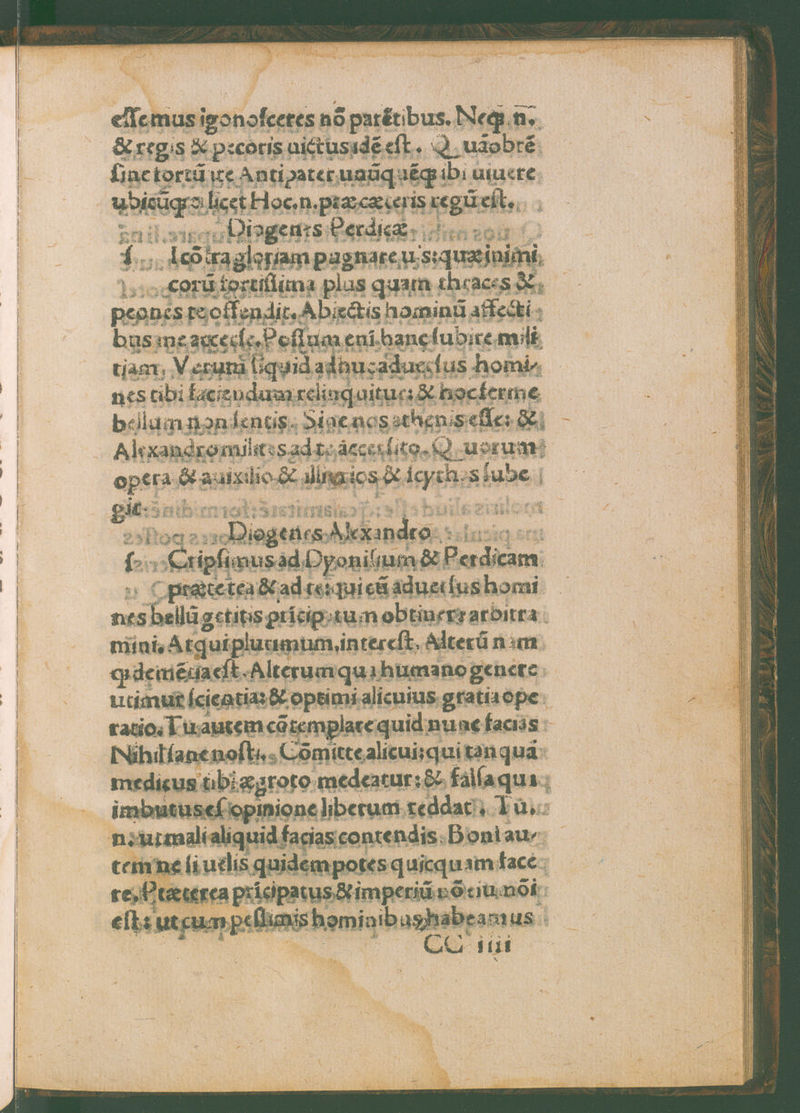 essemus igonosceres nō parētibus. Neqȝ .n.
& regis & pecoris uictus idē est. Q. uāobrē
sine tortū ite Antipater uāūq uēqȝ ibi uiuere
ubicūqȝ licet Hoc.n. præcæteris regū est.
Diogenes Perdicæ.
cō tra gloriam pugnare u.s quæ inimi
corū fortissima plus quam thraces &
peones te offendit. Abiectis hominū affecti
bus me accede. Possum eni hanc subire mili
tiam, Verum siquid adhuc aduersus homi
nes tibi faciendum relinquitur: & hoc ferme
bellum non sentis. Sine nos athenis esse: &
Alexandro milites ad te accersito. Q. uorum
opera & auxilio & ilirios & scythas sube
git
Diogenes Alexandro
Cripsimus ad Dyonisium & Perdicam
præterea & ad te: qui cū aduersus homi
nes bellū geritis prīcipatum obtinere arbitra
mini. Atqui plurimum, interest. Alterū nam
qȝ demētia est. Alterum qua humano genere
utimur scientia: & optimi alicuius gratia ope
ratio. Tu autem cōtemplare quid nunc facias
Nihil sane nosti. Cōmitte alicui: qui tan quā
medicus tibi ægroto medeatur: & falsa qua
imbutus es opinione liberum reddat. Tu.
n. ut mali aliquid facias contendis. Boni au
tem ne si uelis quidem potes quicquam face
re, Præterea prīcipatus & imperiū nō nōi
est: ut cum pessimis hominibus habeamus
CC iiii